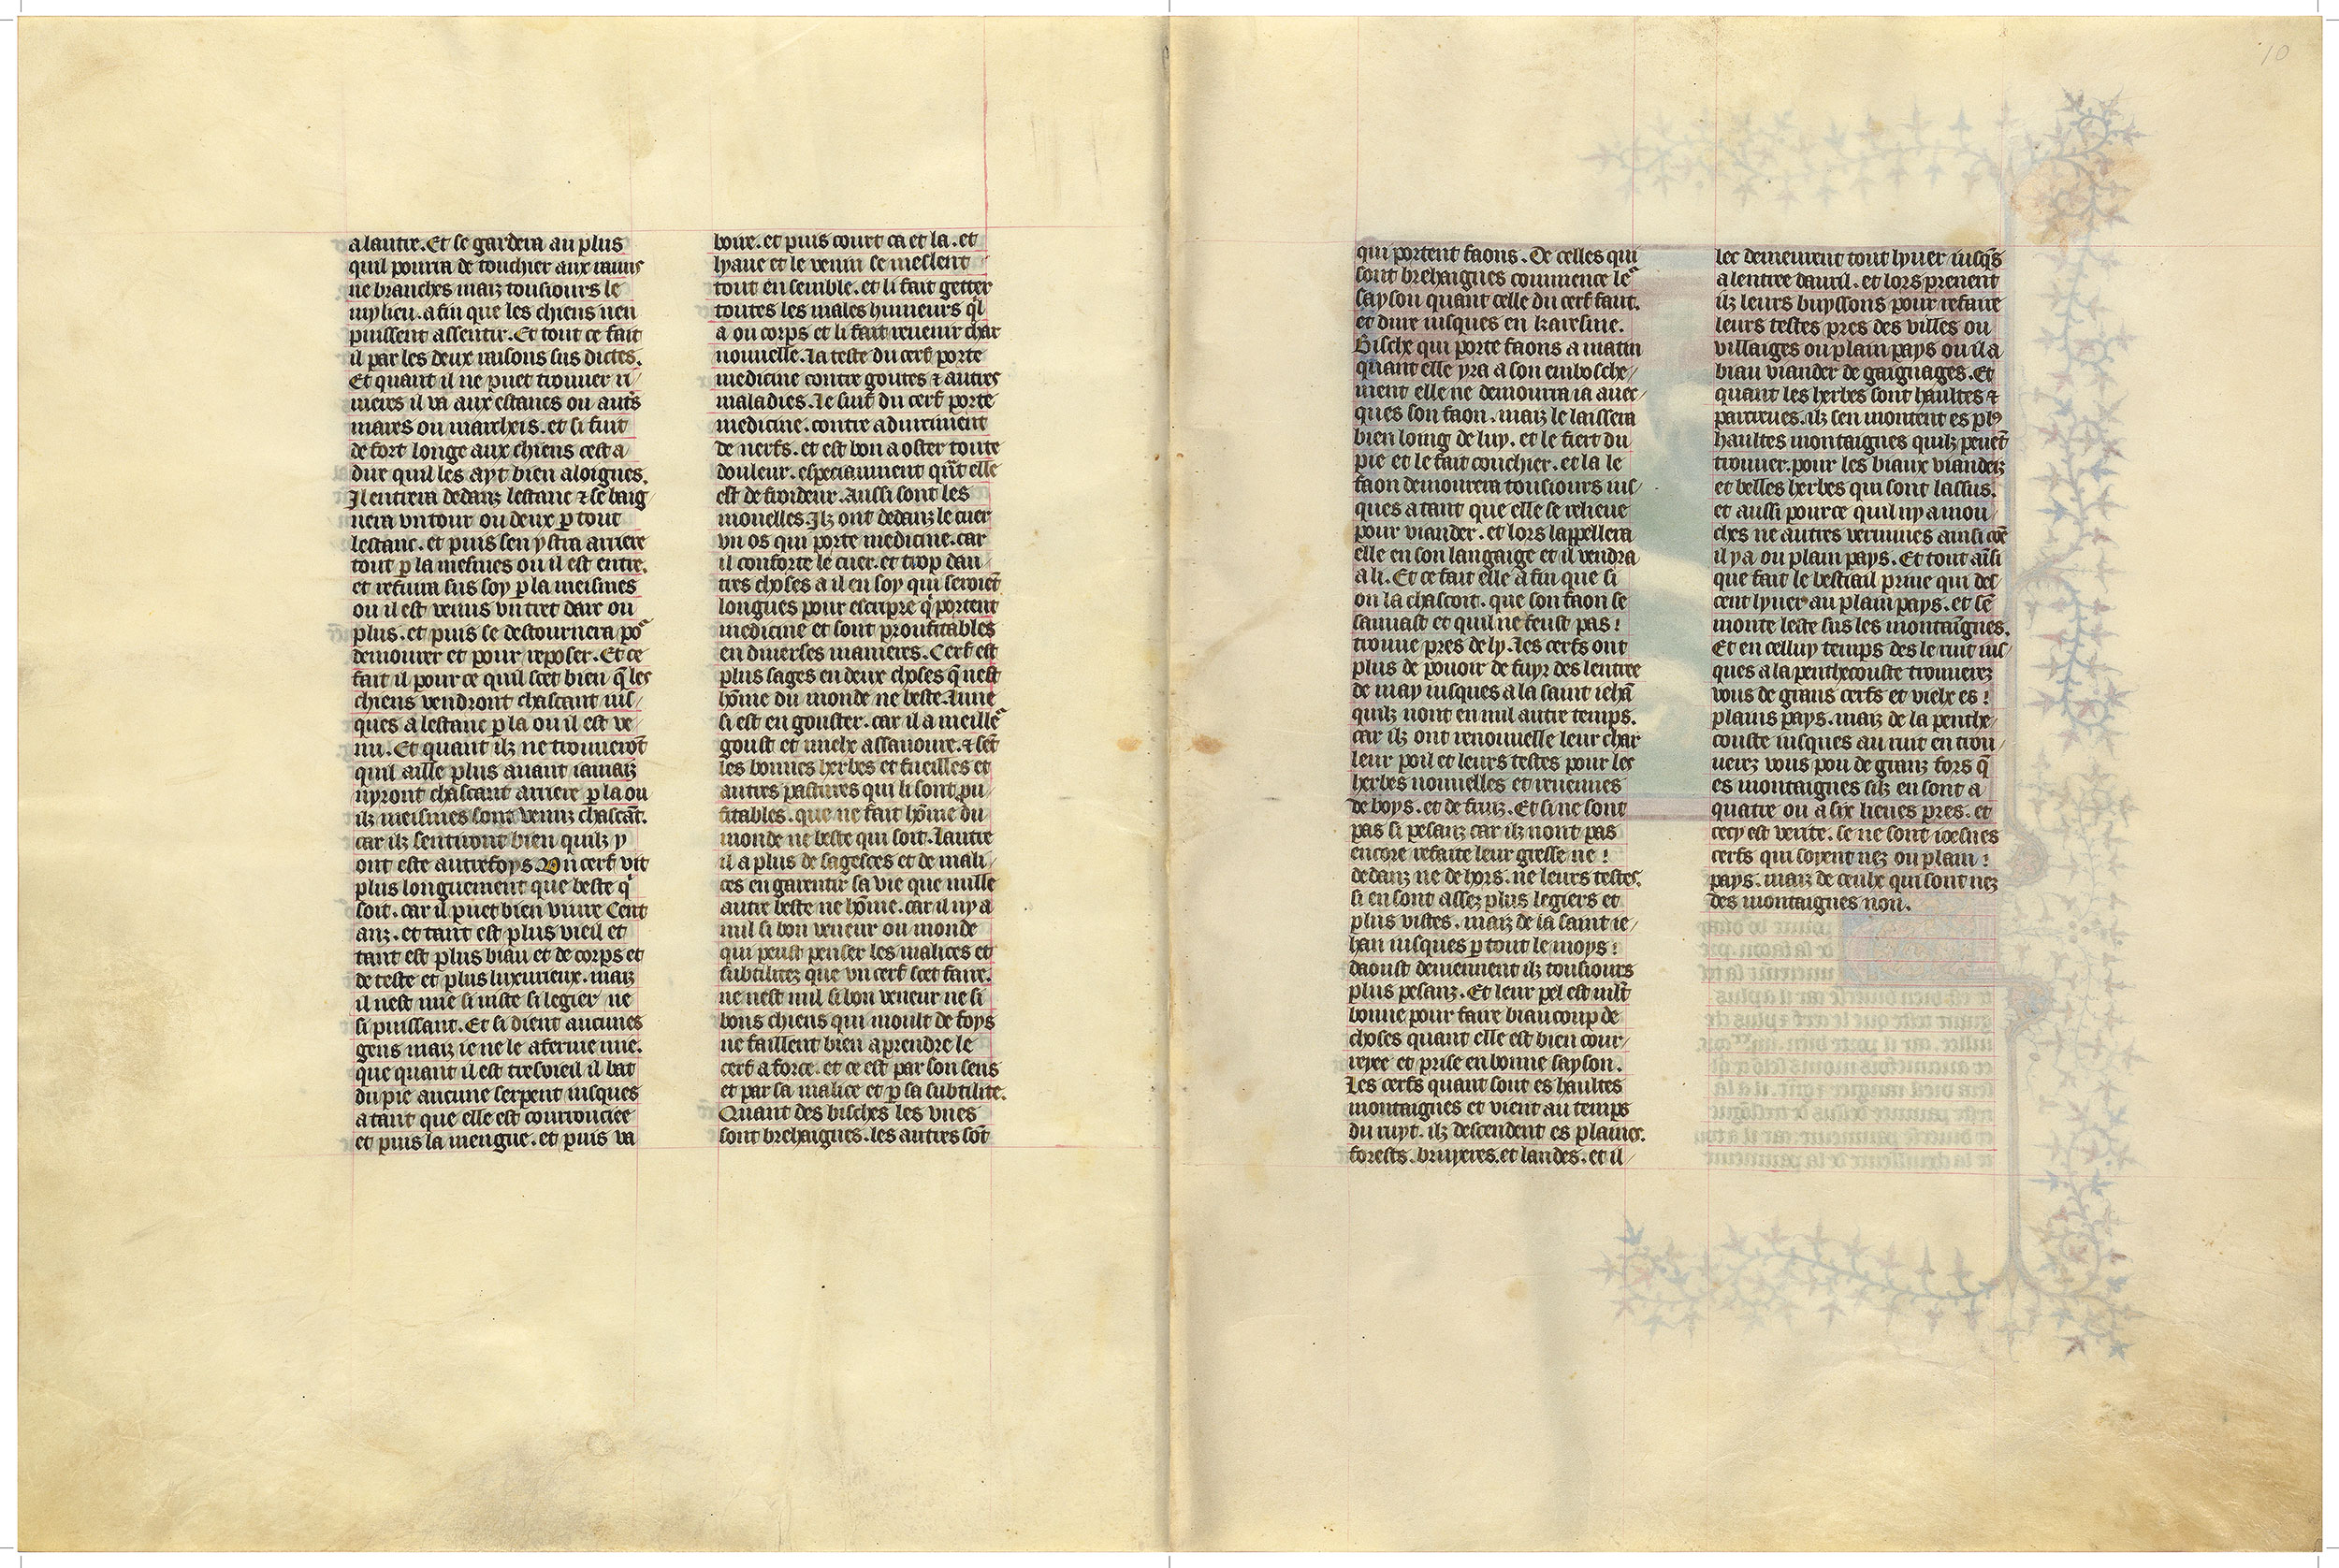 a lautre. Et se gardera au plus
quil pourra de touchier aux rains
ne branches maiz tousiours le
mylieu. a fin que les chiens nen
puissent assentir. Et tout ce fait
il par les deux raisons sus dictes.
Et quant il ne puet trouuer ri/
uieres il va aux estancs ou aut̃s
mares ou marcheis. et si fuit
de fort longe aux chiens cest a/
dire quil les ayt bien aloignes.
Il entrera dedanz lestanc ⁊ se baig/
nera vn tour ou deux ꝑ tout
lestanc. et puis sen ystra arriere
tout ꝑ la mesmes ou il est entre.
et refuira sus soy ꝑ la meismes
ou il est venus vn tret darc ou
plus. et puis se destournera po᷑
demourer et pour reposer. Et ce
fait il pour ce quil scet bien q̃ les
chiens vendront chascant ius/
ques a lestanc ꝑ la ou il est ve/
nu. Et quant ilz ne trouuerõt
quil aille plus auant iamaiz
nyront chascant arriere ꝑ la ou
ilz meismes sont venuz chascãt.
car ilz sentiront bien quilz y
ont este autrefoys. Un cerf vit
plus longuement que beste q̃
soit. car il puet bien viure Cent
anz. et tant est plus vieil et
tant est plus biau et de corps et
de teste et plus luxurieux. maiz
il nest mie si viste si legier ne
si puissant. Et si dient aucunes
gens maiz ie ne le aferme mie.
que quant il est tresvieil il bat
du pie aucune serpent iusques
a tant que elle est courrouciee
et puis la mengue. et puis va
boire. et puis court ca et la. et
lyaue et le venin se meslent
tout en semble. et li fait getter
toutes les males humeurs q̃l
a ou corps et li fait reuenir char
nouuelle. La teste du cerf porte
medicine contre goutes ⁊ autres
maladies. Le suif du cerf porte
medicine. contre adurciment
de nerfs. et est bon a oster toute
douleur. especiaument qñt elle
est de froideur. Aussi sont les
mouelles. Ilz ont dedanz le cuer
vn os qui porte medicine. car
il conforte le cuer. et trop dau/
tres choses a il en soy qui seroiẽt
longues pour escripre q̃ portent
medicine et sont proufitables
en diuerses manieres. Cerf est
plus sages en deux choses q̃ nest
hõme du monde ne beste. Lune
si est en gouster. car il a meille᷑
goust et mielx assauoure. ⁊ sẽt
les bonnes herbes et fueilles et
autres pastures qui li sont ꝓu/
fitables. que ne fait hõme du
monde ne beste qui soit. Lautre
il a plus de sagesces et de mali/
ces en garentir sa vie que nulle
autre beste ne hõme. car il ny a
nul si bon veneur ou monde
qui peust penser les malices et
subtilitez que vn cerf scet faire.
ne nest nul si bon veneur ne si
bons chiens qui moult de foys
ne faillent bien a prendre le
cerf a force. et ce est par son sens
et par sa malice et ꝑ sa subtilite.
Quant des bisches les vnes
sont brehaignes. les autres sõt
qui portent faons. De celles qui
sont brehaignes commence le᷑
sayson quant celle du cerf faut.
et dure iusques en karesme.
Bische qui porte faons a matin
quant elle yra a son embosche/
ment elle ne demourra ia auec/
ques son faon. maiz le laissera
bien loing de luy. et le fiert du
pie et le fait couchier. et la le
faon demourera tousiours ius/
ques a tant que elle se relieue
pour viander. et lors lappellera
elle en son langaige et il vendra
a li. Et ce fait elle a fin que si
on la chascoit. que son faon se
sauuast et quil ne feust pas!
trouue pres de ly. Les cerfs ont
plus de pouoir de fuyr des lentree
de may iusques a la saint iehã
quilz nont en nul autre temps.
car ilz ont renouuelle leur char
leur poil et leurs testes pour les
herbes nouuelles et reuenues
de boys. et de fruiz. Et si ne sont
pas si pesanz car ilz nont pas
encore refaite leur gresse ne!
dedanz ne dehors. ne leurs testes.
si en sont assez plus legiers et
plus vistes. maiz de la saint ie/
han iusques ꝑ tout le moys!
daoust deuiennent ilz tousiours
plus pesanz. Et leur pel est mlt̃
bonne pour faire biau coup de
choses quant elle est bien cour/
reyee et prise en bonne sayson.
Les cerfs quant sont es haultes
montaignes et vient au temps
du ruyt. ilz descendent es plaines.
forests. bruyeres. et landes. et il/
lec demeurent tout lyuer iusq̃s
a lentree dauril. et lors prenent
ilz leurs buyssons pour refaire
leurs testes pres des villes ou
villaiges ou plain pays ou il a
biau viander de gaignages. Et
quant les herbes sont haultes ⁊
parcrues. ilz sen montent es plꝰ
haultes montaignes quilz peuẽt
trouuer. pour les biaux viandeiz
et belles herbes qui sont lassus.
et aussi pour ce quil ny a mou/
ches ne autres vermines ainsi cõe
il y a ou plain pays. Et tout aĩsi
que fait le bestiail priue qui des/
cent lyuer au plain pays. et sẽ
monte leste sus les montaignes.
Et en celluy temps des le ruit ius/
ques a la penthecouste trouuerez
vous de grans cerfs et vielx es!
plains pays. maiz de la penthe/
couste iusques au ruit en trou/
uerez vous pou de granz fors q̃
es montaignes silz en sont a
quatre ou a six lieues pres. et
cecy est verite. se ne sont ioesnes
cerfs qui soyent nez ou plain!
pays. maiz de ceulx qui sont nez
des montaignes non.
10